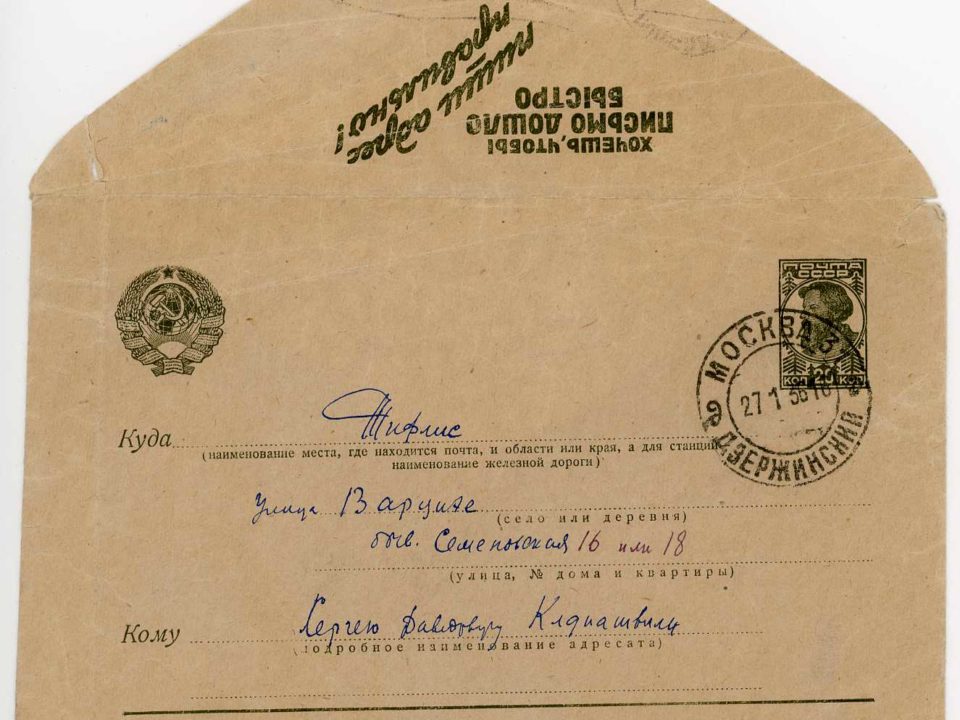 пиши адрес
правильно!
ХОЧЕШЬ, ЧТОБЫ
ПИСЬМО ДОШЛО
БЫСТРО
ПОЧТА
СССР
КОП 20 КОП
МОСКВА 3
27 1 36 16
ДЗЕРЖИНСКИЙ
Куда Тифлис
(наименование места, где находится почта, и области или края, а для станций
наименование железной дороги)
Улица Варциме
(село или деревня)
быв. Семеновская 16 или 18
(улица, № дома и квартиры)
Кому Сергею Давидовичу Клдиашвили
(подробное наименование адресата)